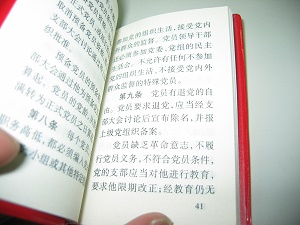 预备党员的
支部大会讨论
织批准。
预备党员的
部大会通过
算起。党员的
演转为正式党员之日
第八条 每个党
职务高低,都必须编
小组或其他特定
的组织生活,接受党内
群众的监督。党员领导干部
必须参加党委、党组的民主
活会。不允许有任何不参加
组织生活、不接受党内外
群众监督的特殊党员。
第九条 党员有退党的自
由。党员要求退党,应当经支
部大会讨论后宣布除名,并报
上级党组织备案。
党员缺乏革命意志,不履
行党员义务,不符合党员条件,
党的支部应当对他进行教育,
要求他限期改正;经教育仍无
41